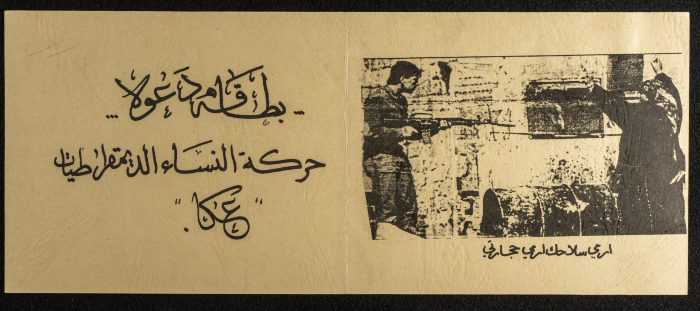 .. بطاقة دعوة ...
حركة النساء الديمقراطيات
"عكا".
ارمي سلاحك ارمي حجارتي